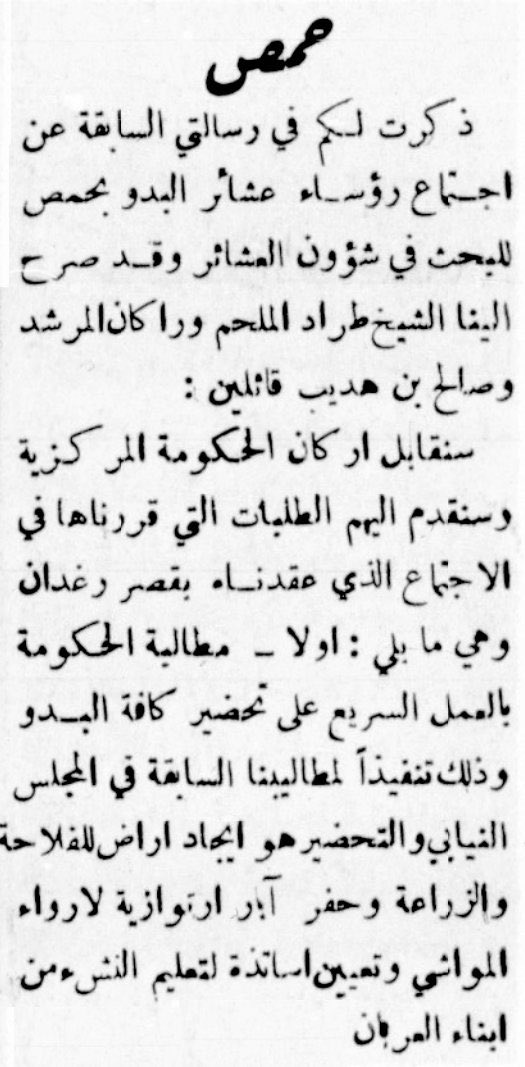 حمص
ذكرت لكم في رسالتي السابقة عن
اجتماع رؤساء عشائر البدو بحمص
للبحث في شؤون العشائر وقد صرح
الينا الشيخ طراد الملحم وراكان المرشد
وصالح بن هديب قائلين :
سنقابل اركان الحكومة المركزية
وسنقدم اليهم الطلبات التي قررناها في
الاجتماع الذي عقدناه بقصر رغدان
وهي ما يلي : اولا – مطالبة الحكومة
بالعمل السريع على تحضير كافة البدو
وذلك تنفيذاً لمطاليبنا السابقة في المجلس
النيابي والتحضير هو ايجاد اراض للفلاحة
والزراعة وحفر آبار ارتوازية لارواء
المواشي وتعيين اساتذة لتعليم النشء من
ابناء العربان